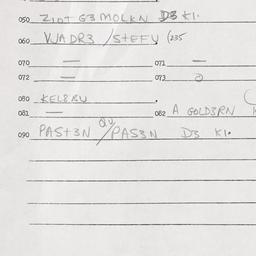 050 ZIDT G3 MOLKN D3 KI.
060 VJADR3 / STEFV (235
070 — 071 —
072 — 073
080 KEL8RU
081 — 082 A GOLD3RN
090 PAST3N QV/PAS3N D3 KI.